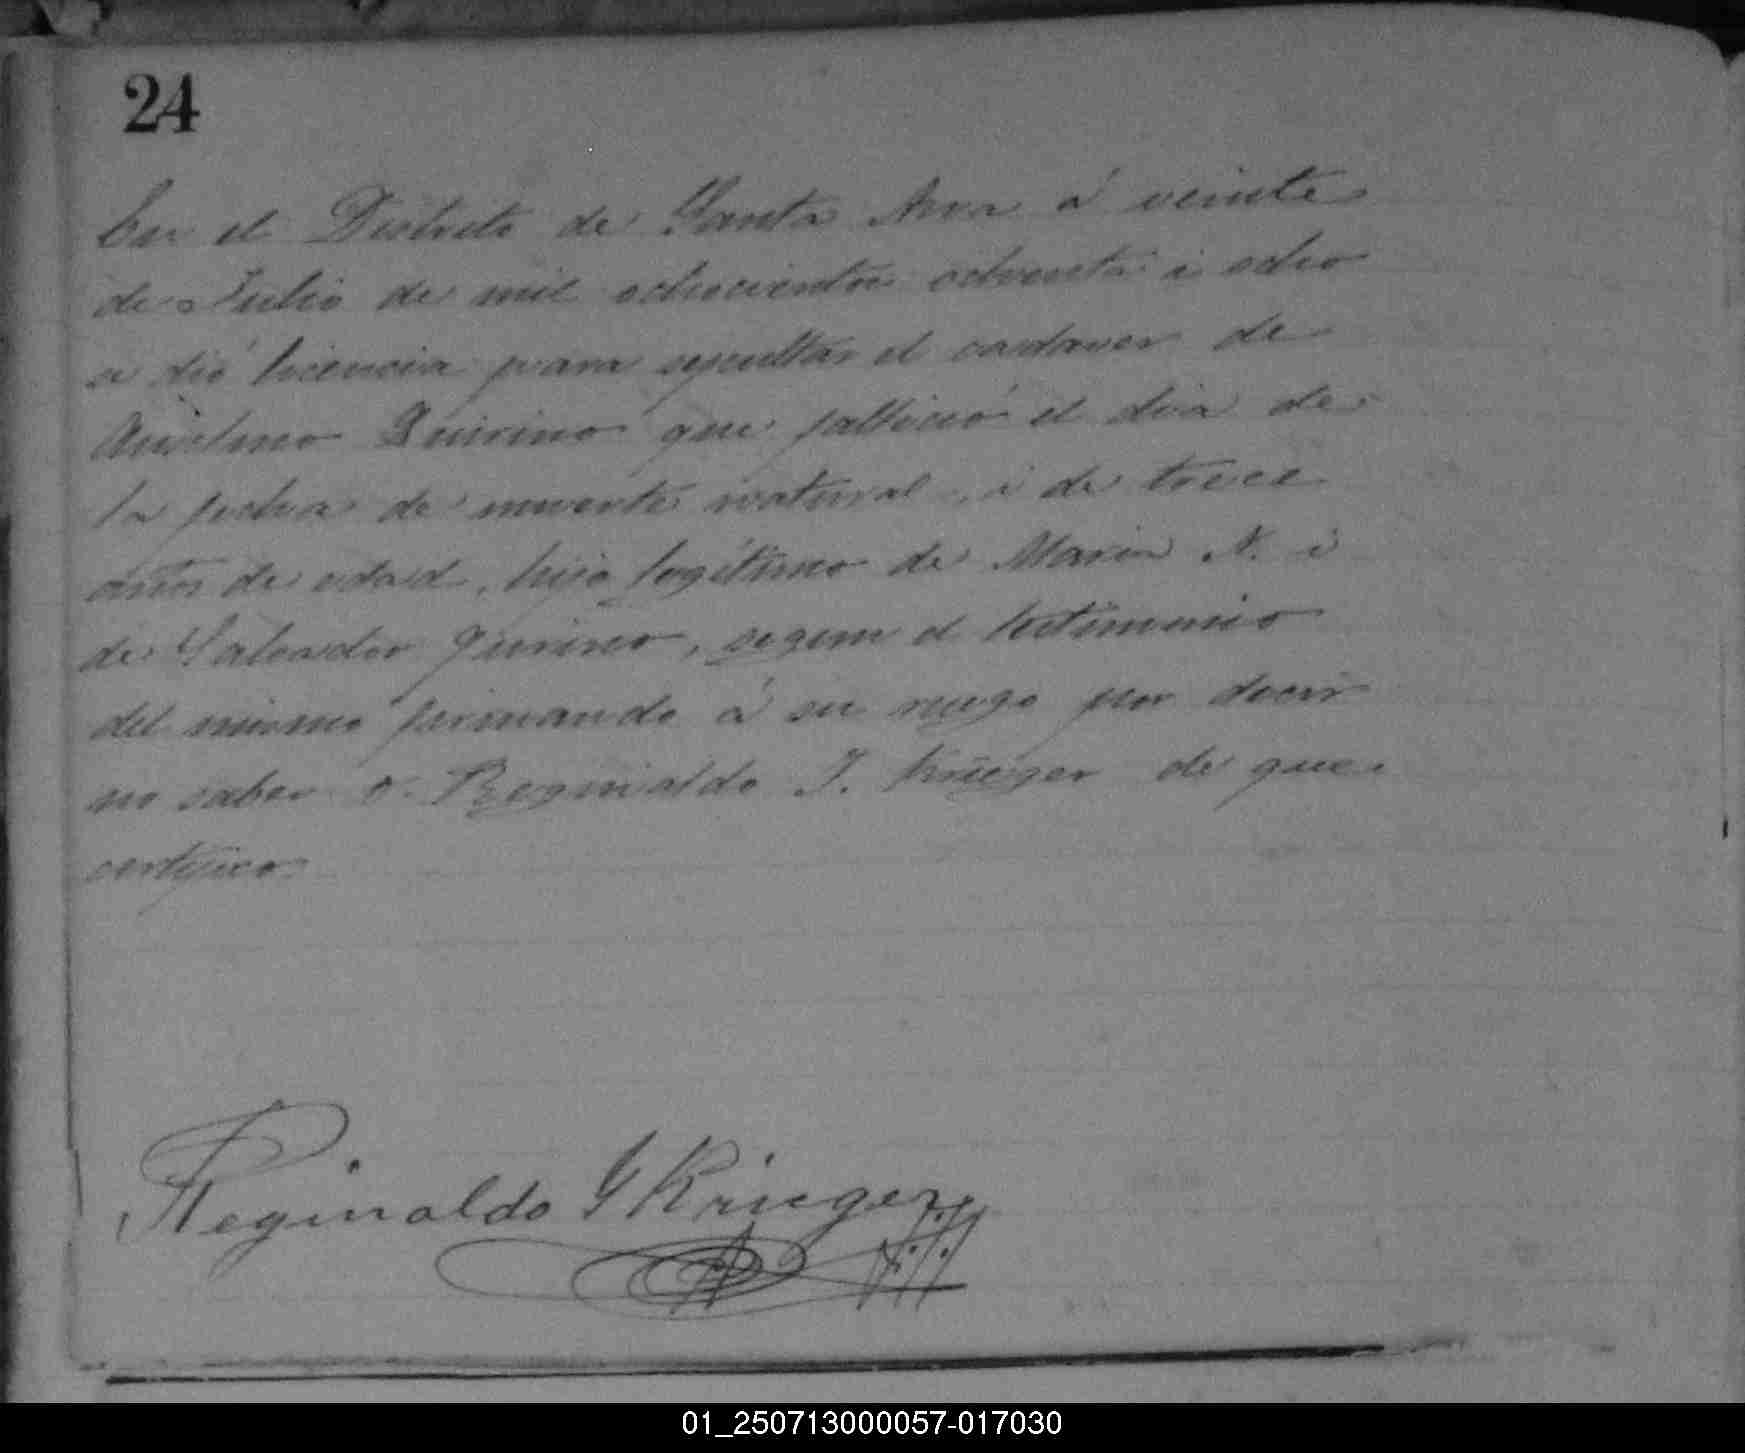 24
En el Distrito de Santa Ana á veinte
de Julio de mil ochocientos ochenta i ocho
se dió licencia para sepultar el cadaver de
Anselmo Quirino que falleció el dia de
la fecha de muerte natural, i de trece
años de edad, hijo legítimo de Maria N. i
de Salvador Quirino, segun el testimonio
del mismo firmando á su ruego por decir
no saber D. Reginaldo J. Krüeger de que
certifico.
Reginaldo G Krüeger
01_250713000057-017030